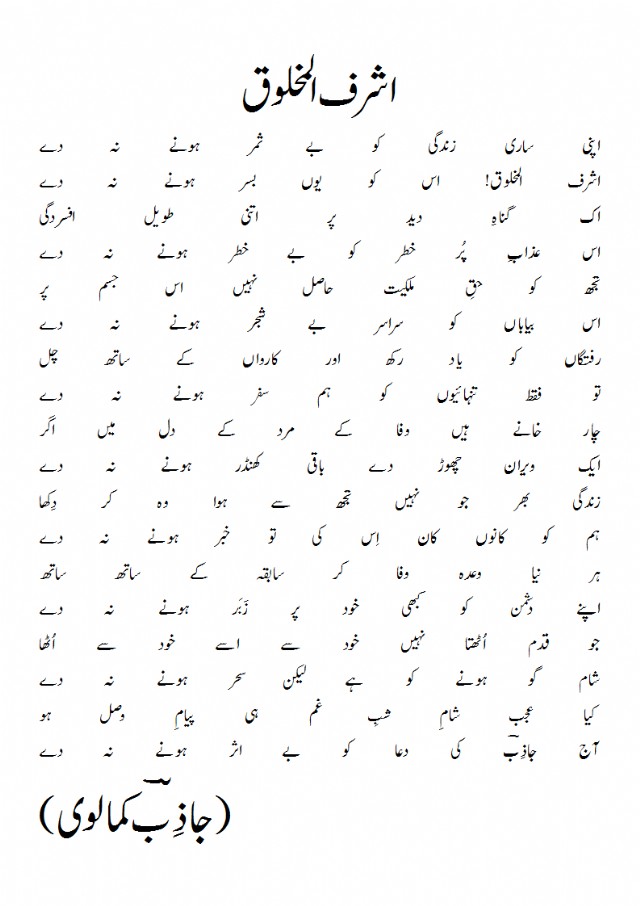 اشرف المخلوق
اپنی ساری زندگی کو بے ثمر ہونے نہ دے
اشرف المخلوق! اس کو یوں بسر ہونے نہ دے
اک گناہِ دید پر اتنی طویل افسردگی
اس عذابِ پُر خطر کو بے خطر ہونے نہ دے
تجھ کو حقِ ملکیت حاصل نہیں اس جسم پر
اس بیاباں کو سراسر بے شجر ہونے نہ دے
رفتگاں کو یاد رکھ اور کارواں کے ساتھ چل
تو فقط تنہائیوں کو ہم سفر ہونے نہ دے
چار خانے ہیں وفا کے مرد کے دل میں اگر
ایک ویران چھوڑ دے باقی کھنڈر ہونے نہ دے
زندگی بھر جو نہیں تجھ سے ہوا وہ کر دِکھا
ہم کو کانوں کان اِس کی تو خبر ہونے نہ دے
ہر نیا وعدہ وفا کر سابقہ کے ساتھ ساتھ
اپنے دشمن کو کبھی خود پر زَبَر ہونے نہ دے
جو قدم اُٹھتا نہیں خود سے اسے خود سے اُٹھا
شام گو ہونے کو ہے لیکن سحر ہونے نہ دے
کیا عجب شامِ شبِ غم ہی پیامِ وصل ہو
آج جاذِبؔ کی دعا کو بے اثر ہونے نہ دے
(جاذِبؔ کمالوی)